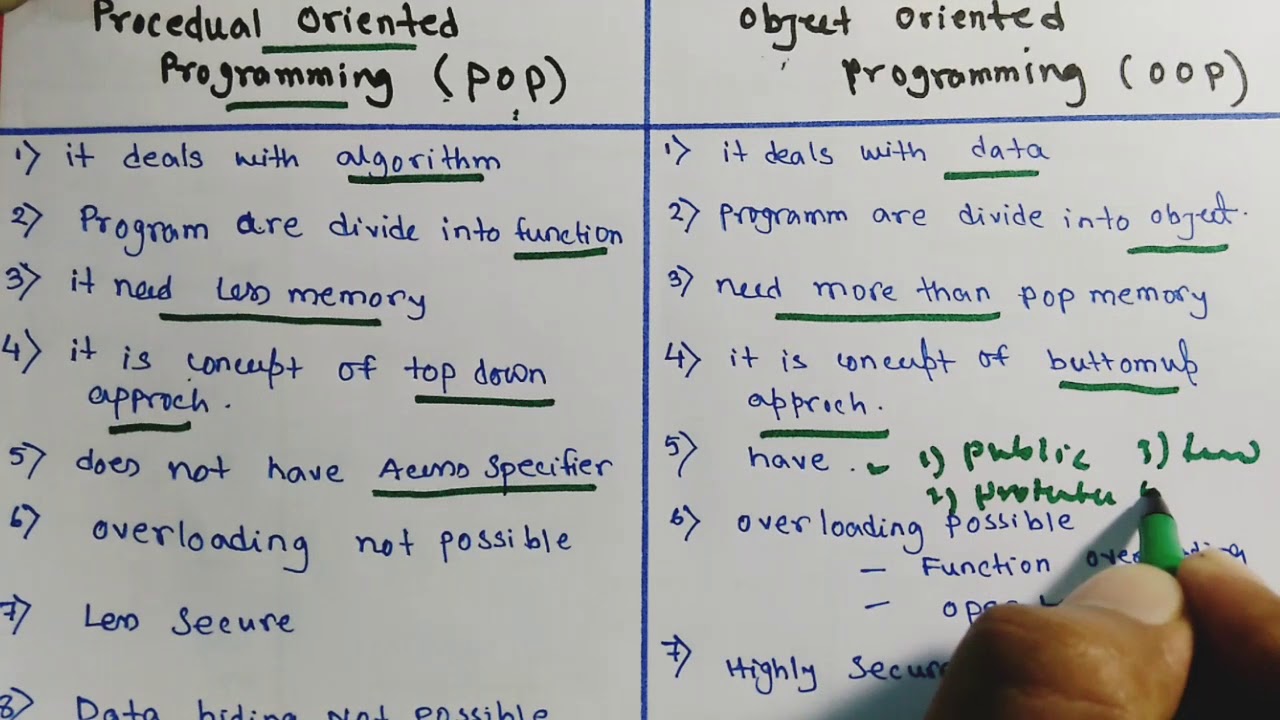 Procedual Oriented
Programming (POP)
1) it deals with algorithm
2) Program are divide into function
3) it need Less memory
4) it is concept of top down
approch.
5) does not have Access Specifier
6) overloading not possible
7) Less Secure
8) Data hiding Not possible
Object Oriented
Programming (OOP)
1) it deals with data
2) programm are divide into object.
3) need more than pop memory
4) it is concept of buttomup
approch.
5) have. 1) public 3)
2)
6) overloading possible
- Function
-
7) Highly Secure